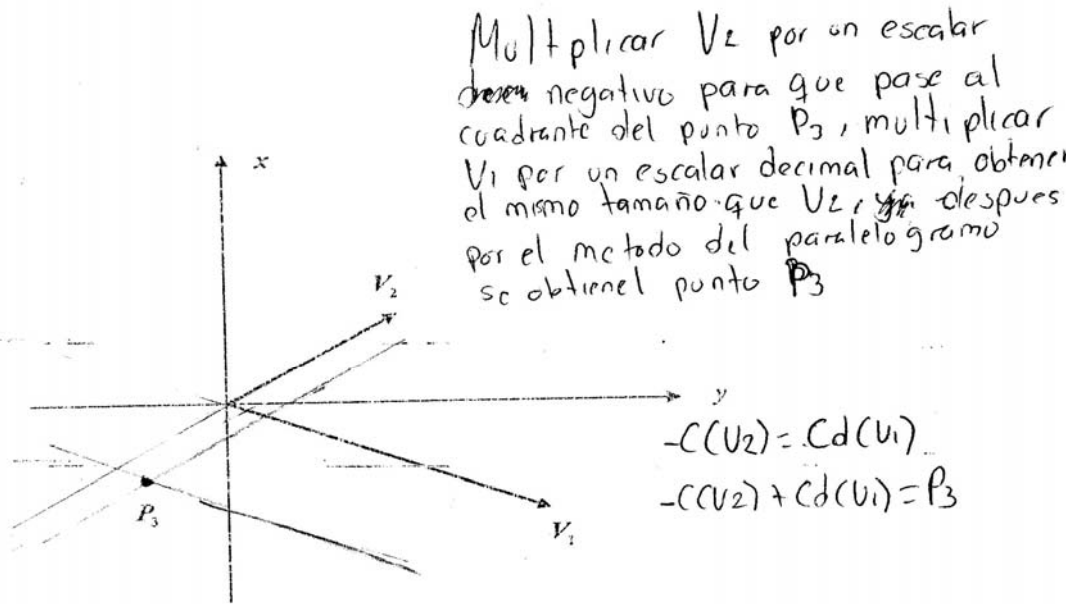 Multplicar V2 por un escalar
negativo para que pase al
cuadrante del punto P3, multiplicar
V1 por un escalar decimal para obtener
el mismo tamaño que V2, despues
por el metodo del paralelogramo
se obtienel punto P3
x
V2
y
-C(V2) = Cd(V1)
-C(V2) + Cd(V1) = P3
P3
V1